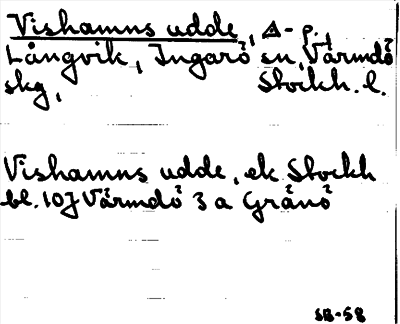 Vishamns udde, Δ-p.,
Långvik, Ingarö sn, Värmdö
skg, Stockh. l.
Vishamns udde, ek Stockh
bl. 10J Värmdö 3 a Grånö
SB-58